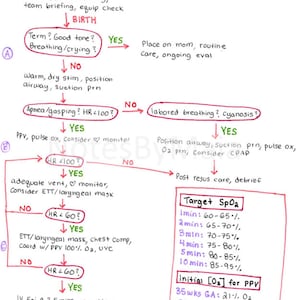 team briefing, equip check
BIRTH
Term? Good tone?
Breathing/crying?
YES
Place on mom, routine
care, ongoing eval
A
NO
Warm, dry stim, position
airway, suction prn
Apnea/gasping? HR<100?
NO
labored breathing? Cyanosis?
YES
YES
B
PPV, pulse ox, consider ♡ monitor
Position airway, suction prn, pulse ox,
O₂ prn, consider CPAP
HR<100?
NO
YES
Post resus care, debrief
adequate vent, ♡ monitor,
Consider ETT/laryngeal mask
NO
HR<60?
YES
ETT/laryngeal mask, chest comp,
Coord w/ PPV 100% O₂, UVC
C
NO
HR<60?
YES
Target SpO₂
1 min: 60-65%
2 min: 65-70%
3 min: 70-75%
4 min: 75-80%
5 min: 80-85%
10 min: 85-95%
Initial [O₂] for PPV
≥35wks GA: 21% O₂
NotesBy